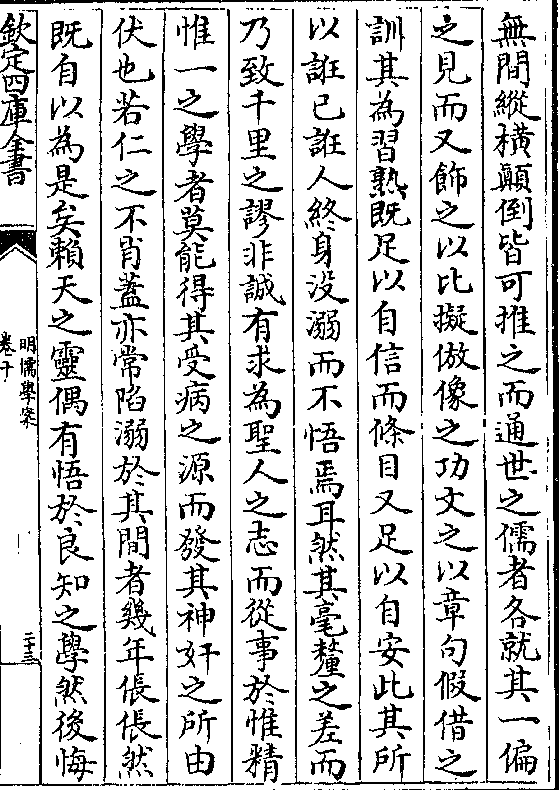 無間縱橫顛倒皆可推之而通世之儒者各就其一偏
之見而又飾之以比擬倣像之功文之以章句假借之
訓其為習熟既足以自信而條目又足以自安此其所
以誑己誑人終身没溺而不悟焉耳然其毫釐之差而
乃致千里之謬非誠有求為聖人之志而從事於惟精
惟一之學者莫能得其受病之源而發其神奸之所由
伏也若仁之不肖葢亦常陷溺於其間者幾年倀倀然
既自以為是矣賴天之靈偶有悟於良知之學然後悔
欽定四庫全書
明儒學案
卷十
二十三